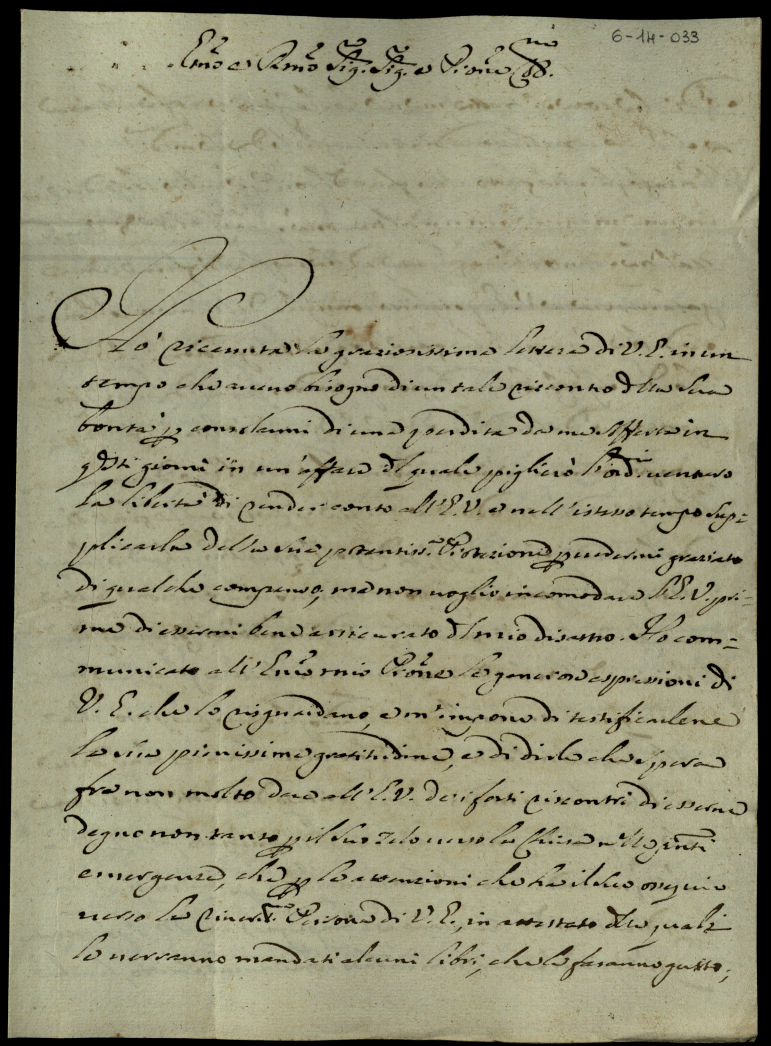 6-14-033
Em̃o e Rm̃o Sig.r Sig.r e P̃rone Col.mo
Hò ricevuta la graziosissima lettera di V. E. in un
tempo che avevo bisogno di un tale riscontro della sua
bontà p consolarmi di una perdita da me sofferta in
q̃sti giorni in un'affare del quale piglierò l'ord.io venturo
la libertà di render conto all'E. V. e nell'istesso tempo sup=
plicarla della sua potentiss.a Protezione p vedermi graziato
di qualche compenso, mà non voglio incomodare l'E. V. pri=
ma di essermi bene assicurato del mio disastro. Hò com=
municato all'Em̃o mio P̃rone le generose espressioni di
V. E. che lo risguardano, e m'impone di testificarlene
la sua pienissima gratitudine, e di dirle che spera
frà non molto dare all'E. V. dei forti riscontri di esserne
degno non tanto p il suo zelo verso la Chiesa nelle p̃nti
emergenze, che p le attenzioni che hà il suo ossequio
verso la river.ma Persona di V. E., in attestato delle quali
le verranno mandati alcuni libri, che le faranno gusto;